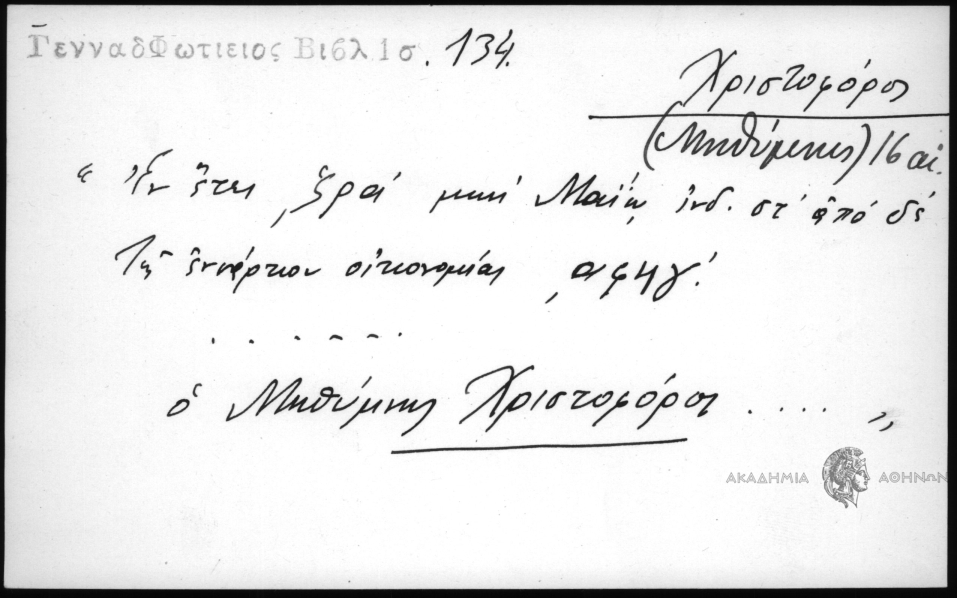 Γενναδ Φωτιειος Βιβλ 1σ. 134.
Χριστοφόρος
(Μηθύμνης) 16 αἰ.
"Ἐν ἔτει ͵ζραʹ μηνὶ Μαΐῳ ἰνδ. στʹ ἀπὸ δὲ
τῆς ἐνσάρκου οἰκονομίας ͵αφηγʹ.
. . . . . . .
ὁ Μηθύμνης Χριστοφόρος . . . . "
ΑΚΑΔΗΜΙΑ ΑΘΗΝΩΝ